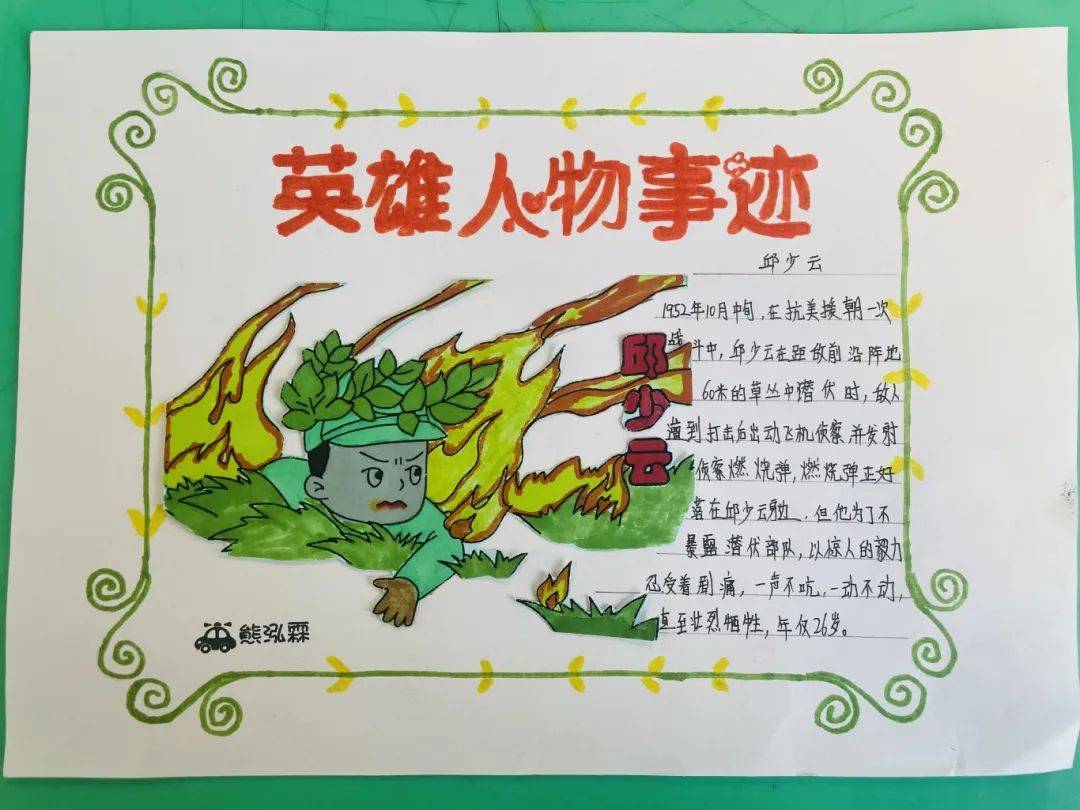 英雄人物事迹
邱少云
1952年10月中旬,在抗美援朝一次
战斗中,邱少云在距敌前沿阵地
60米的草丛中潜伏时,敌人
遭到打击后出动飞机侦察,并发射
侦察燃烧弹,燃烧弹正好
落在邱少云身边,但他为了不
暴露潜伏部队,以惊人的毅力
忍受着剧痛,一声不吭,一动不动,
直至壮烈牺牲,年仅26岁。
邱少云
熊泓霖